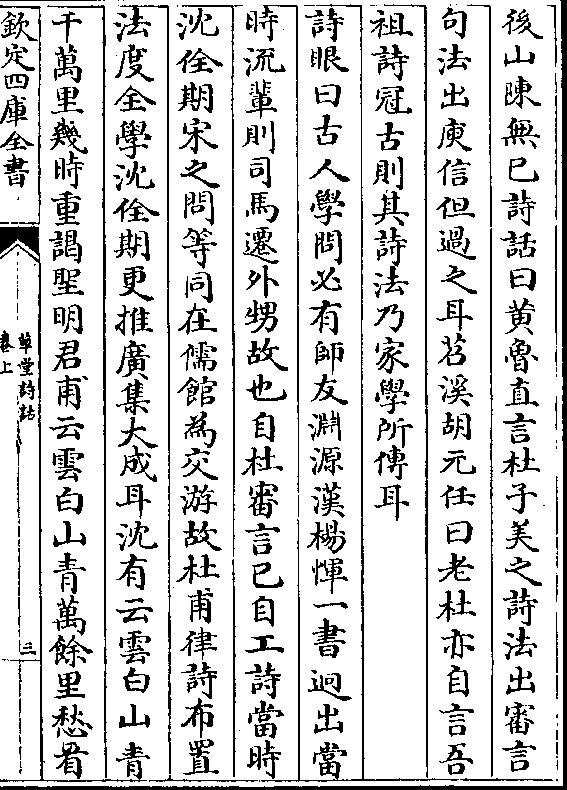 後山陳無已詩話曰黄魯直言杜子美之詩法出審言
句法出庾信但過之耳苕溪胡元任曰老杜亦自言吾
祖詩冠古則其詩法乃家學所傳耳
詩眼曰古人學問必有師友淵源漢楊惲一書逈出當
時流輩則司馬遷外甥故也自杜審言已自工詩當時
沈佺期宋之問等同在儒館為交游故杜甫律詩布置
法度全學沈佺期更推廣集大成耳沈有云雲白山青
千萬里幾時重謁聖明君甫云雲白山青萬餘里愁看
欽定四庫全書
草堂詩話
卷上
三